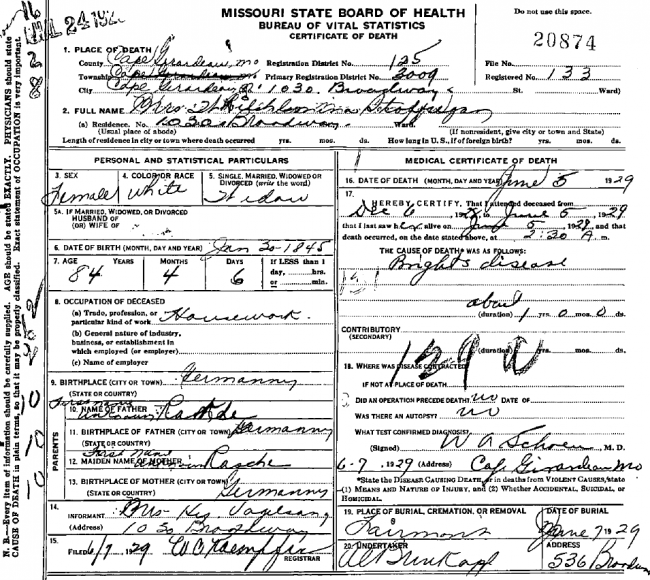 MISSOURI STATE BOARD OF HEALTH
BUREAU OF VITAL STATISTICS
CERTIFICATE OF DEATH
Do not use this space.
20874
1. PLACE OF DEATH
County Cape Girardeau, Mo Registration District No. 125 File No.
Township Cape Girardeau, Mo Primary Registration District No. 3009 Registered No. 133
City Cape Girardeau 1030 Broadway St. Ward)
2. FULL NAME Mrs.
(a) Residence. No. 1030 Broadway Ward.
(Usual place of abode) (If nonresident, give city or town and State)
Length of residence in city or town where death occurred yrs. mos. ds. How long in U.S., if of foreign birth? yrs. mos. ds.
PERSONAL AND STATISTICAL PARTICULARS
3. SEX
Female
4. COLOR OR RACE
White
5. SINGLE, MARRIED, WIDOWED OR DIVORCED (write the word)
Widow
5A. IF MARRIED, WIDOWED, OR DIVORCED
HUSBAND OF
(OR) WIFE OF
6. DATE OF BIRTH (MONTH, DAY AND YEAR) Jan 30-1845
7. AGE YEARS MONTHS DAYS If LESS than 1
84 4 6 day, hrs.
or min.
8. OCCUPATION OF DECEASED
(a) Trade, profession, or
particular kind of work Housework.
(b) General nature of industry,
business, or establishment in
which employed (or employer)
(c) Name of employer
9. BIRTHPLACE (CITY OR TOWN) Germanny
(STATE OR COUNTRY)
PARENTS
First Name
10. NAME OF FATHER
11. BIRTHPLACE OF FATHER (CITY OR TOWN) Germanny
(STATE OR COUNTRY)
First Name
12. MAIDEN NAME OF MOTHER Rasche
13. BIRTHPLACE OF MOTHER (CITY OR TOWN)
(STATE OR COUNTRY) Germanny
14.
INFORMANT Mrs. Hy Vogelsang
(Address) Broadway
15.
FILED 6/7 1929 W C Kaempfer
REGISTRAR
MEDICAL CERTIFICATE OF DEATH
16. DATE OF DEATH (MONTH, DAY AND YEAR) June 5 1929
17.
I HEREBY CERTIFY, That I attended deceased from
Dec 6 1928, to June 5, 1929
that I last saw her alive on June 5, 1929, and that
death occurred, on the date stated above, at 2:30 A. m.
THE CAUSE OF DEATH* WAS AS FOLLOWS:
Brights disease
about
(duration) 1 yrs. 0 mos. 0 ds.
CONTRIBUTORY
(SECONDARY)
(duration) yrs. mos. ds.
18. WHERE WAS DISEASE CONTRACTED
IF NOT AT PLACE OF DEATH
DID AN OPERATION PRECEDE DEATH? no DATE OF
WAS THERE AN AUTOPSY? no
WHAT TEST CONFIRMED DIAGNOSIS?
(Signed) W A Schoen, M. D.
6-7, 1929 (Address) Cape Girardeau Mo
*State the DISEASE CAUSING DEATH, or in deaths from VIOLENT CAUSES, state
(1) MEANS AND NATURE OF INJURY, and (2) Whether ACCIDENTAL, SUICIDAL, or
HOMICIDAL.
19. PLACE OF BURIAL, CREMATION, OR REMOVAL DATE OF BURIAL
Fairmont June 7 1929
20. UNDERTAKER ADDRESS
536 Broadway
N. B.—Every item of information should be carefully supplied. AGE should be stated EXACTLY. PHYSICIANS should state
CAUSE OF DEATH in plain terms, so that it may be properly classified. Exact statement of OCCUPATION is very important.